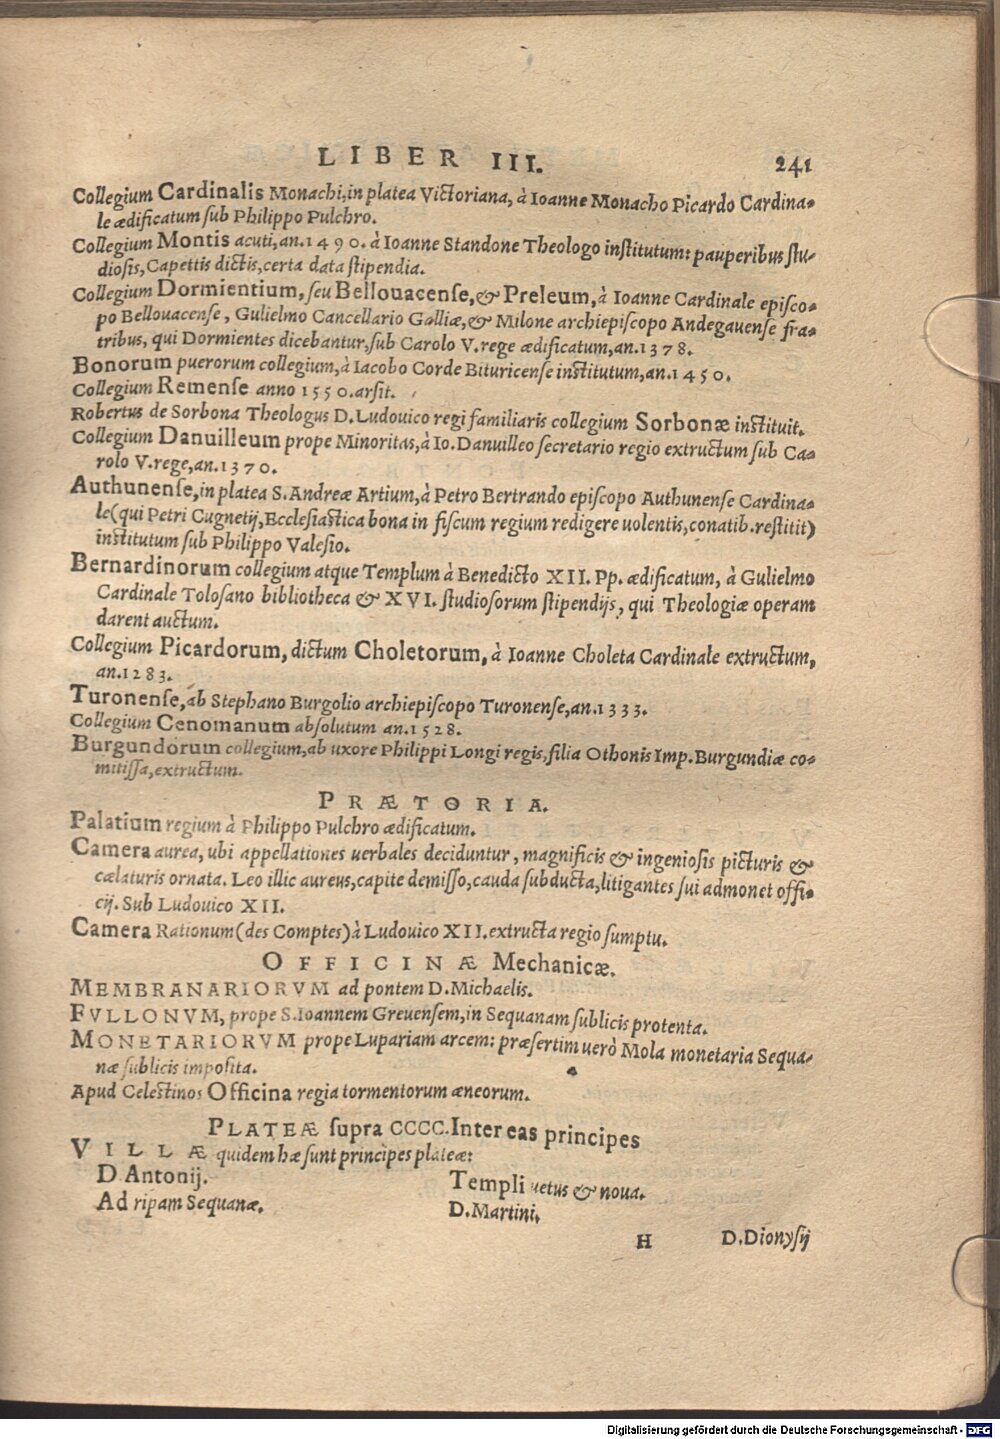 LIBER III. 241
Collegium Cardinalis Monachi, in platea Victoriana, à Ioanne Monacho Picardo Cardina-
le ædificatum sub Philippo Pulchro.
Collegium Montis acuti, an. 1490. à Ioanne Standone Theologo institutum: pauperibus stu-
diosis, Capettis dictis, certa data stipendia.
Collegium Dormientium, seu Bellouacense, & Preleum, à Ioanne Cardinale episco-
po Bellouacense, Gulielmo Cancellario Galliæ, & Milone archiepiscopo Andegauense fra-
tribus, qui Dormientes dicebantur, sub Carolo V. rege ædificatum, an. 1378.
Bonorum puerorum collegium, à Iacobo Corde Bituricense institutum, an. 1450.
Collegium Remense anno 1550. arsit.
Robertus de Sorbona Theologus D. Ludouico regi familiaris collegium Sorbonæ instituit.
Collegium Danuilleum prope Minoritas, à Io. Danuilleo secretario regio extructum sub Ca-
rolo V. rege, an. 1370.
Authunense, in platea S. Andreæ Artium, à Petro Bertrando episcopo Authunense Cardina-
le (qui Petri Cugnetij, Ecclesiastica bona in fiscum regium redigere uolentis, conatib. restitit)
institutum sub Philippo Valesio.
Bernardinorum collegium atque Templum à Benedicto XII. Pp. ædificatum, à Gulielmo
Cardinale Tolosano bibliotheca & XVI. studiosorum stipendijs, qui Theologiæ operam
darent auctum.
Collegium Picardorum, dictum Choletorum, à Ioanne Choleta Cardinale extructum,
an. 1283.
Turonense, ab Stephano Burgolio archiepiscopo Turonense, an. 1333.
Collegium Cenomanum absolutum an. 1528.
Burgundorum collegium, ab uxore Philippi Longi regis, filia Othonis Imp. Burgundiæ co-
mitissa, extructum.
PRÆTORIA.
Palatium regium à Philippo Pulchro ædificatum.
Camera aurea, ubi appellationes uerbales deciduntur, magnificis & ingeniosis picturis &
cælaturis ornata. Leo illic aureus, capite demisso, cauda subducta, litigantes sui admonet offi-
cij. Sub Ludouico XII.
Camera Rationum (des Comptes) à Ludouico XII. extructa regio sumptu.
OFFICINÆ Mechanicæ.
MEMBRANARIORVM ad pontem D. Michaelis.
FVLLONVM, prope S. Ioannem Greuensem, in Sequanam sublicis protenta.
MONETARIORVM prope Lupariam arcem: præsertim uerò Mola monetaria Sequa-
næ sublicis imposita.
Apud Celestinos Officina regia tormentorum æneorum.
PLATEÆ supra CCCC. Inter eas principes
VILLÆ quidem hæ sunt principes plateæ:
D Antonij. Templi uetus & noua.
Ad ripam Sequanæ. D. Martini.
H D. Dionysij
Digitalisierung gefördert durch die Deutsche Forschungsgemeinschaft - DFG